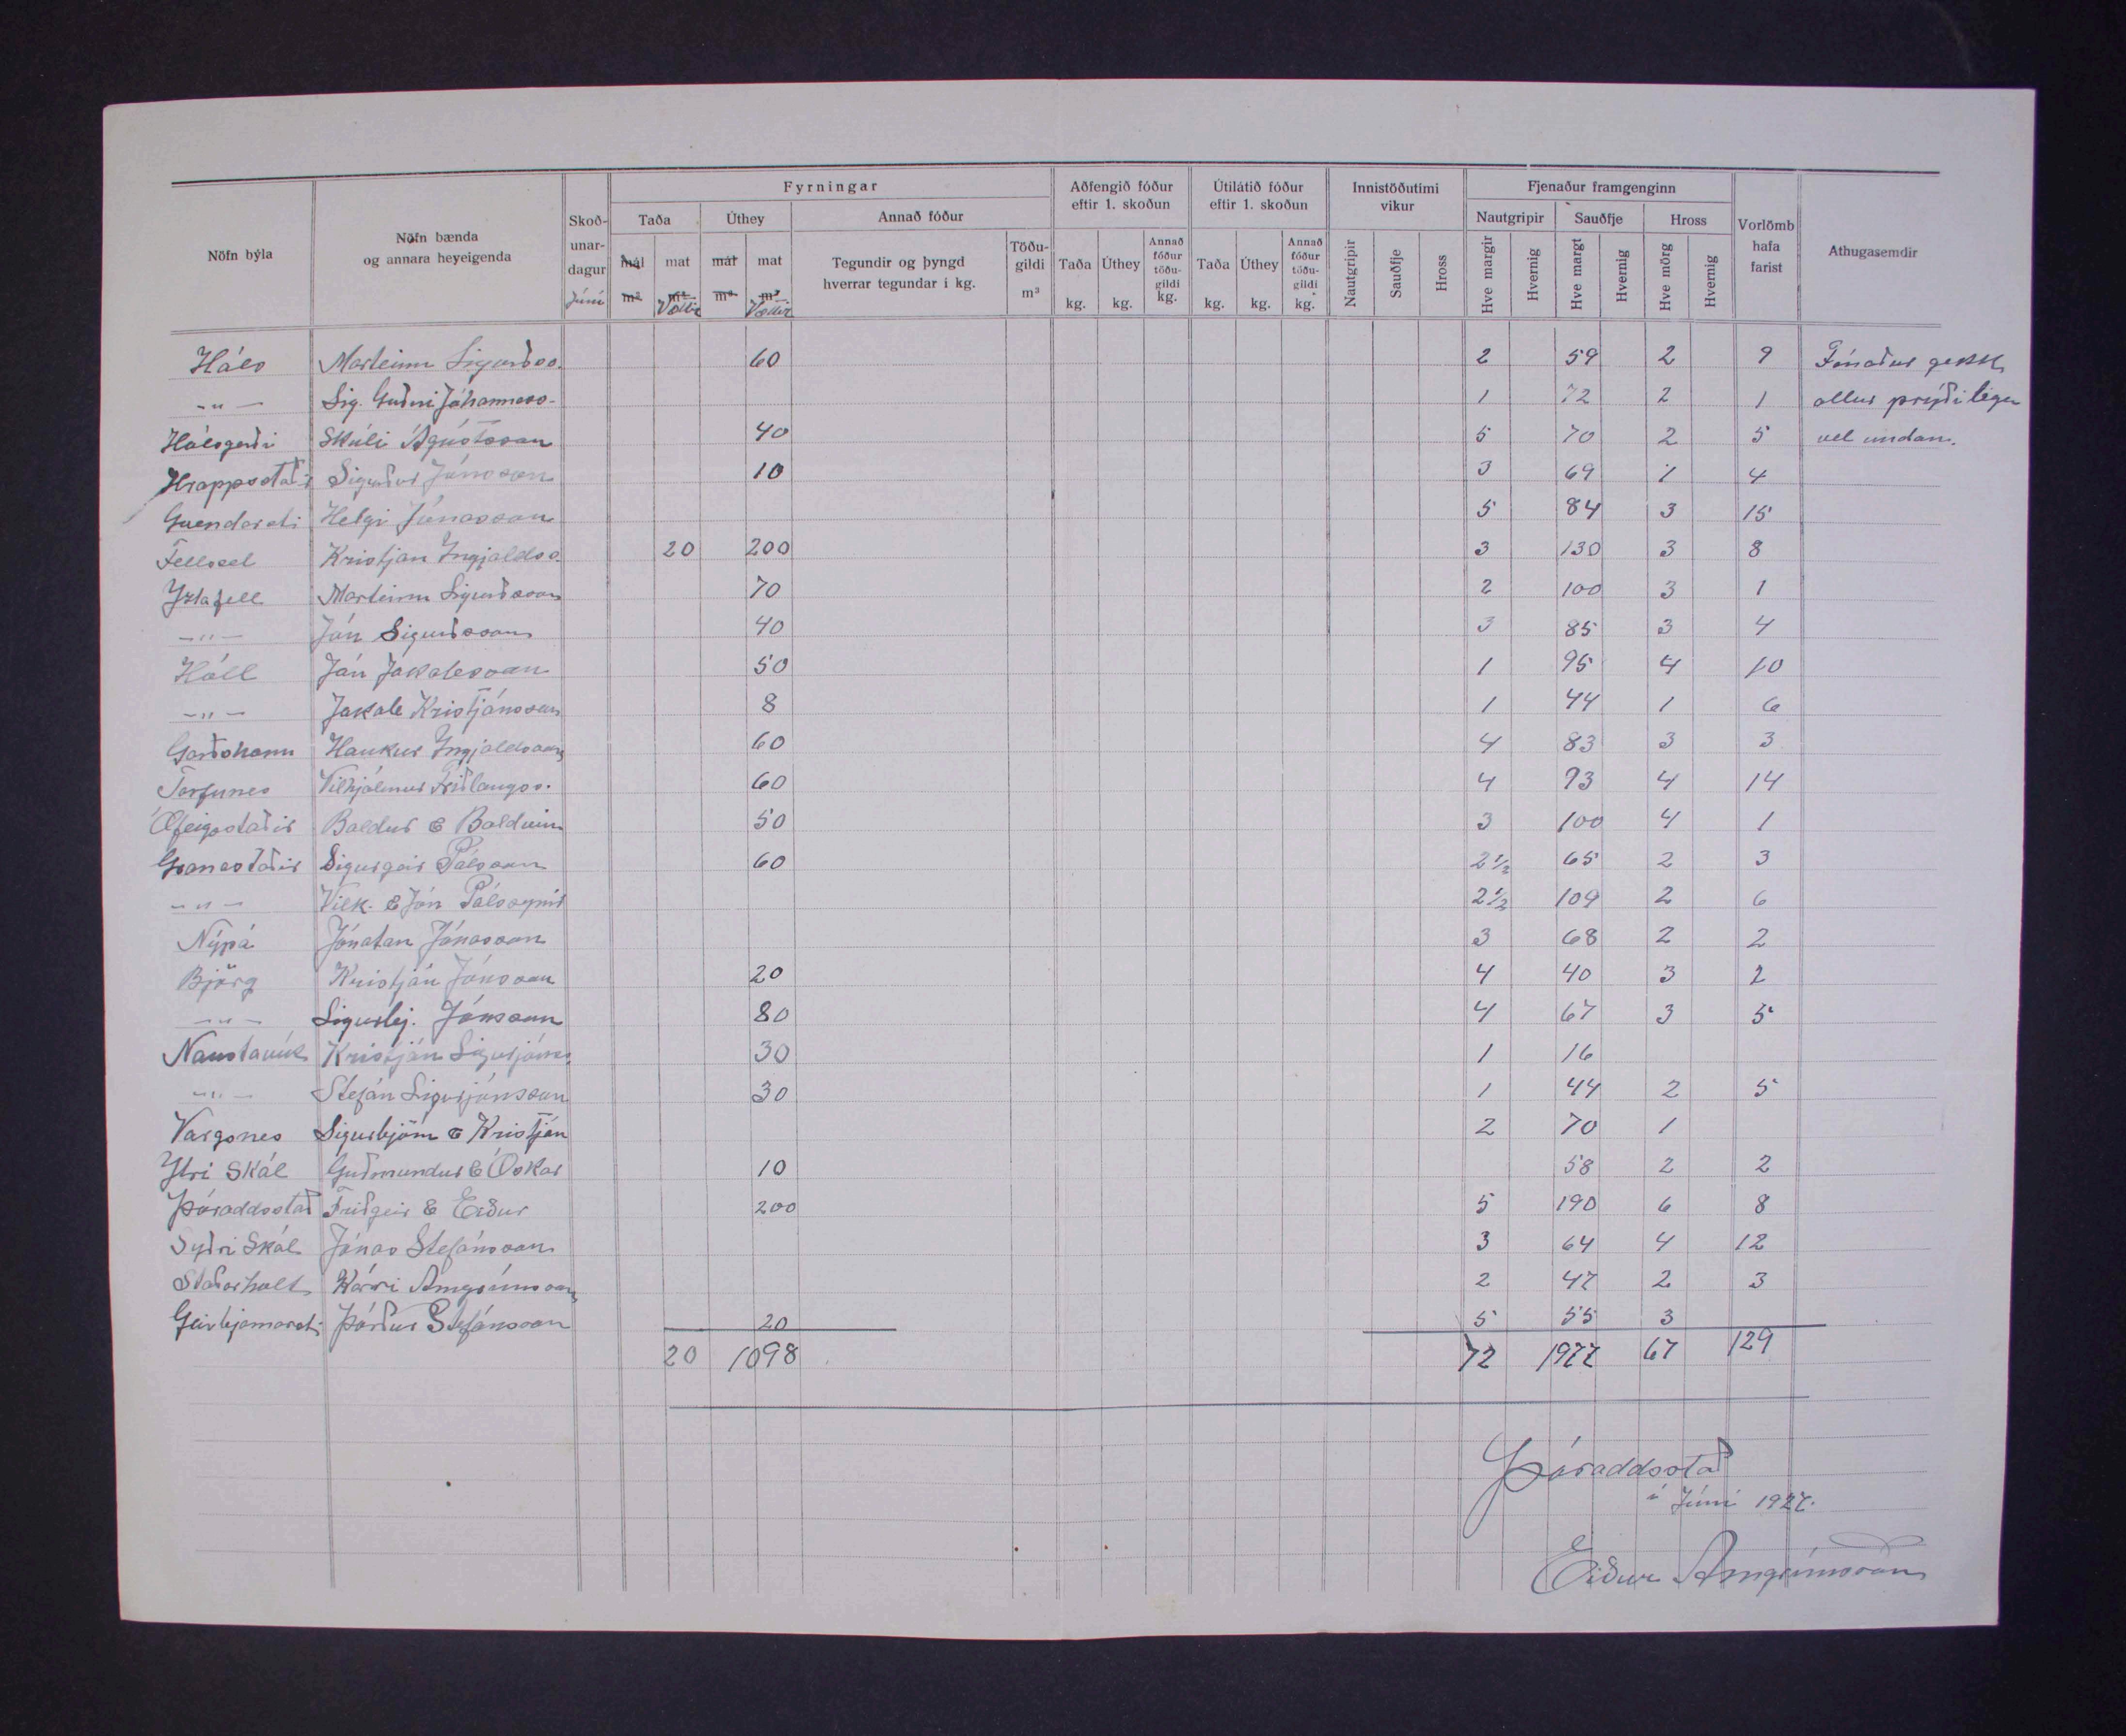 Fyrningar
Aðfengið fóður eftir 1. skoðun
Útilátið fóður eftir 1. skoðun
Innistöðutimi vikur
Fjenaður framgenginn
Nöfn býla
Nöfn bænda og annara heyeigenda
Skoð-unar-dagur Júní
Taða
Úthey
Annað fóður
Nautgripir
Sauðfje
Hross
Vorlömb hafa farist
Athugasemdir
mál m³
mat m³ Vættir
mál m³
mat m³ Vættir
Tegundir og þyngd hverrar tegundar i kg.
Töðu-gildi m³
Taða kg.
Úthey kg.
Annað fóður töðu-gildi kg.
Taða kg.
Úthey kg.
Annað fóður töðu-gildi kg.
Nautgripir
Sauðfje
Hross
Hve margir
Hvernig
Hve margt
Hvernig
Hve mörg
Hvernig
Háls Marteinn Sigurðss. 60 2 59 2 9 Fénaður gekk
-"- Sig. Guðni Jóhanness- 1 72 2 1 allur prýðilega
Hálsgerði Skúli Ágústsson 40 5 70 2 5 vel undan.
Hrappsstaðir Sigurður Jónsson 10 3 69 1 4
Helgi Jónasson 5 84 3 15
Fellssel Kristján Ingjaldss. 20 200 3 130 3 8
Yztafell Marteinn Sigurðsson 70 2 100 3 1
-"- Jón Sigurðsson 40 3 85 3 4
Hóll Jón Jakobsson 50 1 95 4 10
-"- Jakob Kristjánsson 8 1 44 1 6
Garðshorn Haukur Ingjaldsson 60 4 83 3 3
Torfunes Vilhjálmur Friðlaugss. 60 4 93 4 14
Ófeigsstaðir Baldur & Baldvin 50 3 100 4 1
Granastaðir Sigurgeir Pálsson 60 2½ 65 2 3
-"- Vilh. & Jón Pálssynir 2½ 109 2 6
Nýpá Jónatan Jónasson 3 68 2 2
Björg Kristján Jónsson 20 4 40 3 2
-"- Sigurbj. Jónsson 80 4 67 3 5
Naustavík Kristján Sigurjóns. 30 1 16
-"- Stefán Sigurjónsson 30 1 44 2 5
Vargsnes Sigurbjörn & Kristján 2 70 1
Ytri Skál Guðmundur & Óskar 10 58 2 2
Þóroddsstað Friðgeir & Eiður 200 5 190 6 8
Syðri Skál Jónas Stefánsson 3 64 4 12
Staðarholt Kárri Arngrímsson 2 47 2 3
Þórður Stefánsson 20 5 55 3
20 1098 72 1977 67 129
Þóroddsstað
í Júní 1927.
Eiður Arngrímsson